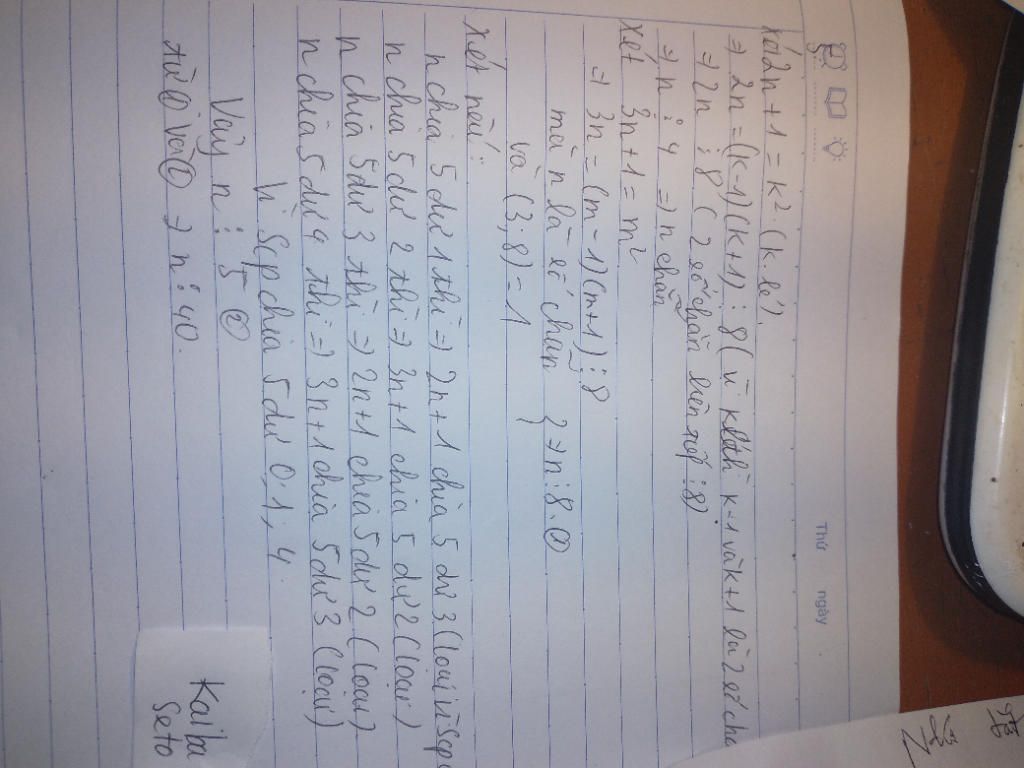 Thứ ngày
Xét 2n + 1 = k². (k lẻ).
⇒ 2n = (k-1)(k+1) ⋮ 8 (vì k lẻ thì k-1 và k+1 là 2 số chẵ
⇒ 2n ⋮ 8 ( 2 số chẵn liên tiếp ⋮ 8)
⇒ n ⋮ 4 ⇒ n chẵn
Xét 3n + 1 = m²
⇒ 3n = (m - 1)(m+1) ⋮ 8
mà n là số chẵn } ⇒ n ⋮ 8. ①
và (3; 8) = 1
Xét nếu:
n chia 5 dư 1 thì ⇒ 2n + 1 chia 5 dư 3 (loại vì scp
n chia 5 dư 2 thì ⇒ 3n+1 chia 5 dư 2 (loại)
n chia 5 dư 3 thì ⇒ 2n+1 chia 5 dư 2 (loại)
n chia 5 dư 4 thì ⇒ 3n+1 chia 5 dư 3 (loại)
Vì scp chia 5 dư 0; 1; 4
Vậy n ⋮ 5 ②
từ ① và ② ⇒ n ⋮ 40.
Kaiba
Seto